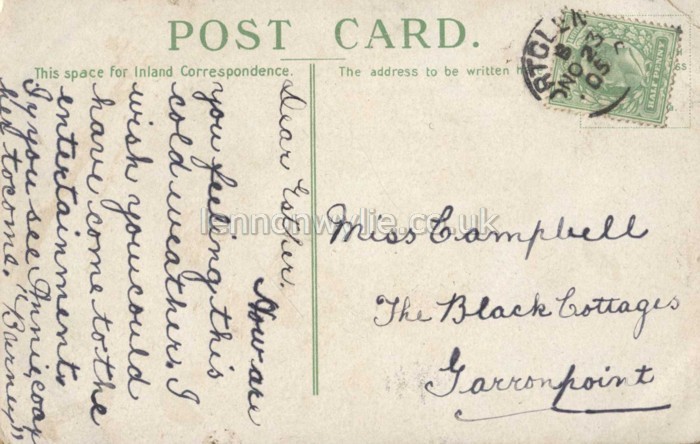 POST CARD.
This space for Inland Correspondence.
The address to be written
HALF PENNY
NO 23
05
Dear Esther,
How are
you feeling this
cold weather. I
wish you could
have come to the
entertainment.
If you see Annie, coax
her to come. "Barney"
Miss Campbell
The Black Cottages
Garronpoint
lennonwylie.co.uk